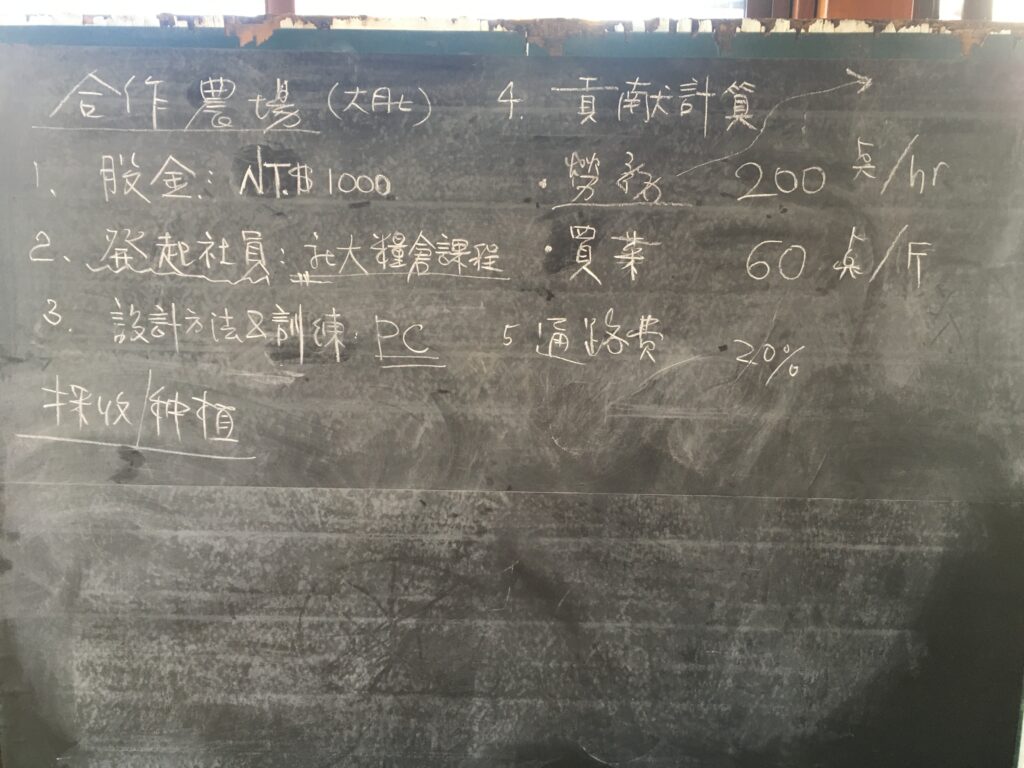 合作農場 (大肚)
1、股金: NT.$ 1000
2、發起社員: 社大糧倉課程
3. 設計方法&訓練: PC
採收/种植
4. 貢献計算
·勞務 200 点/hr
·買菜 60 点/斤
5 通路費 20%